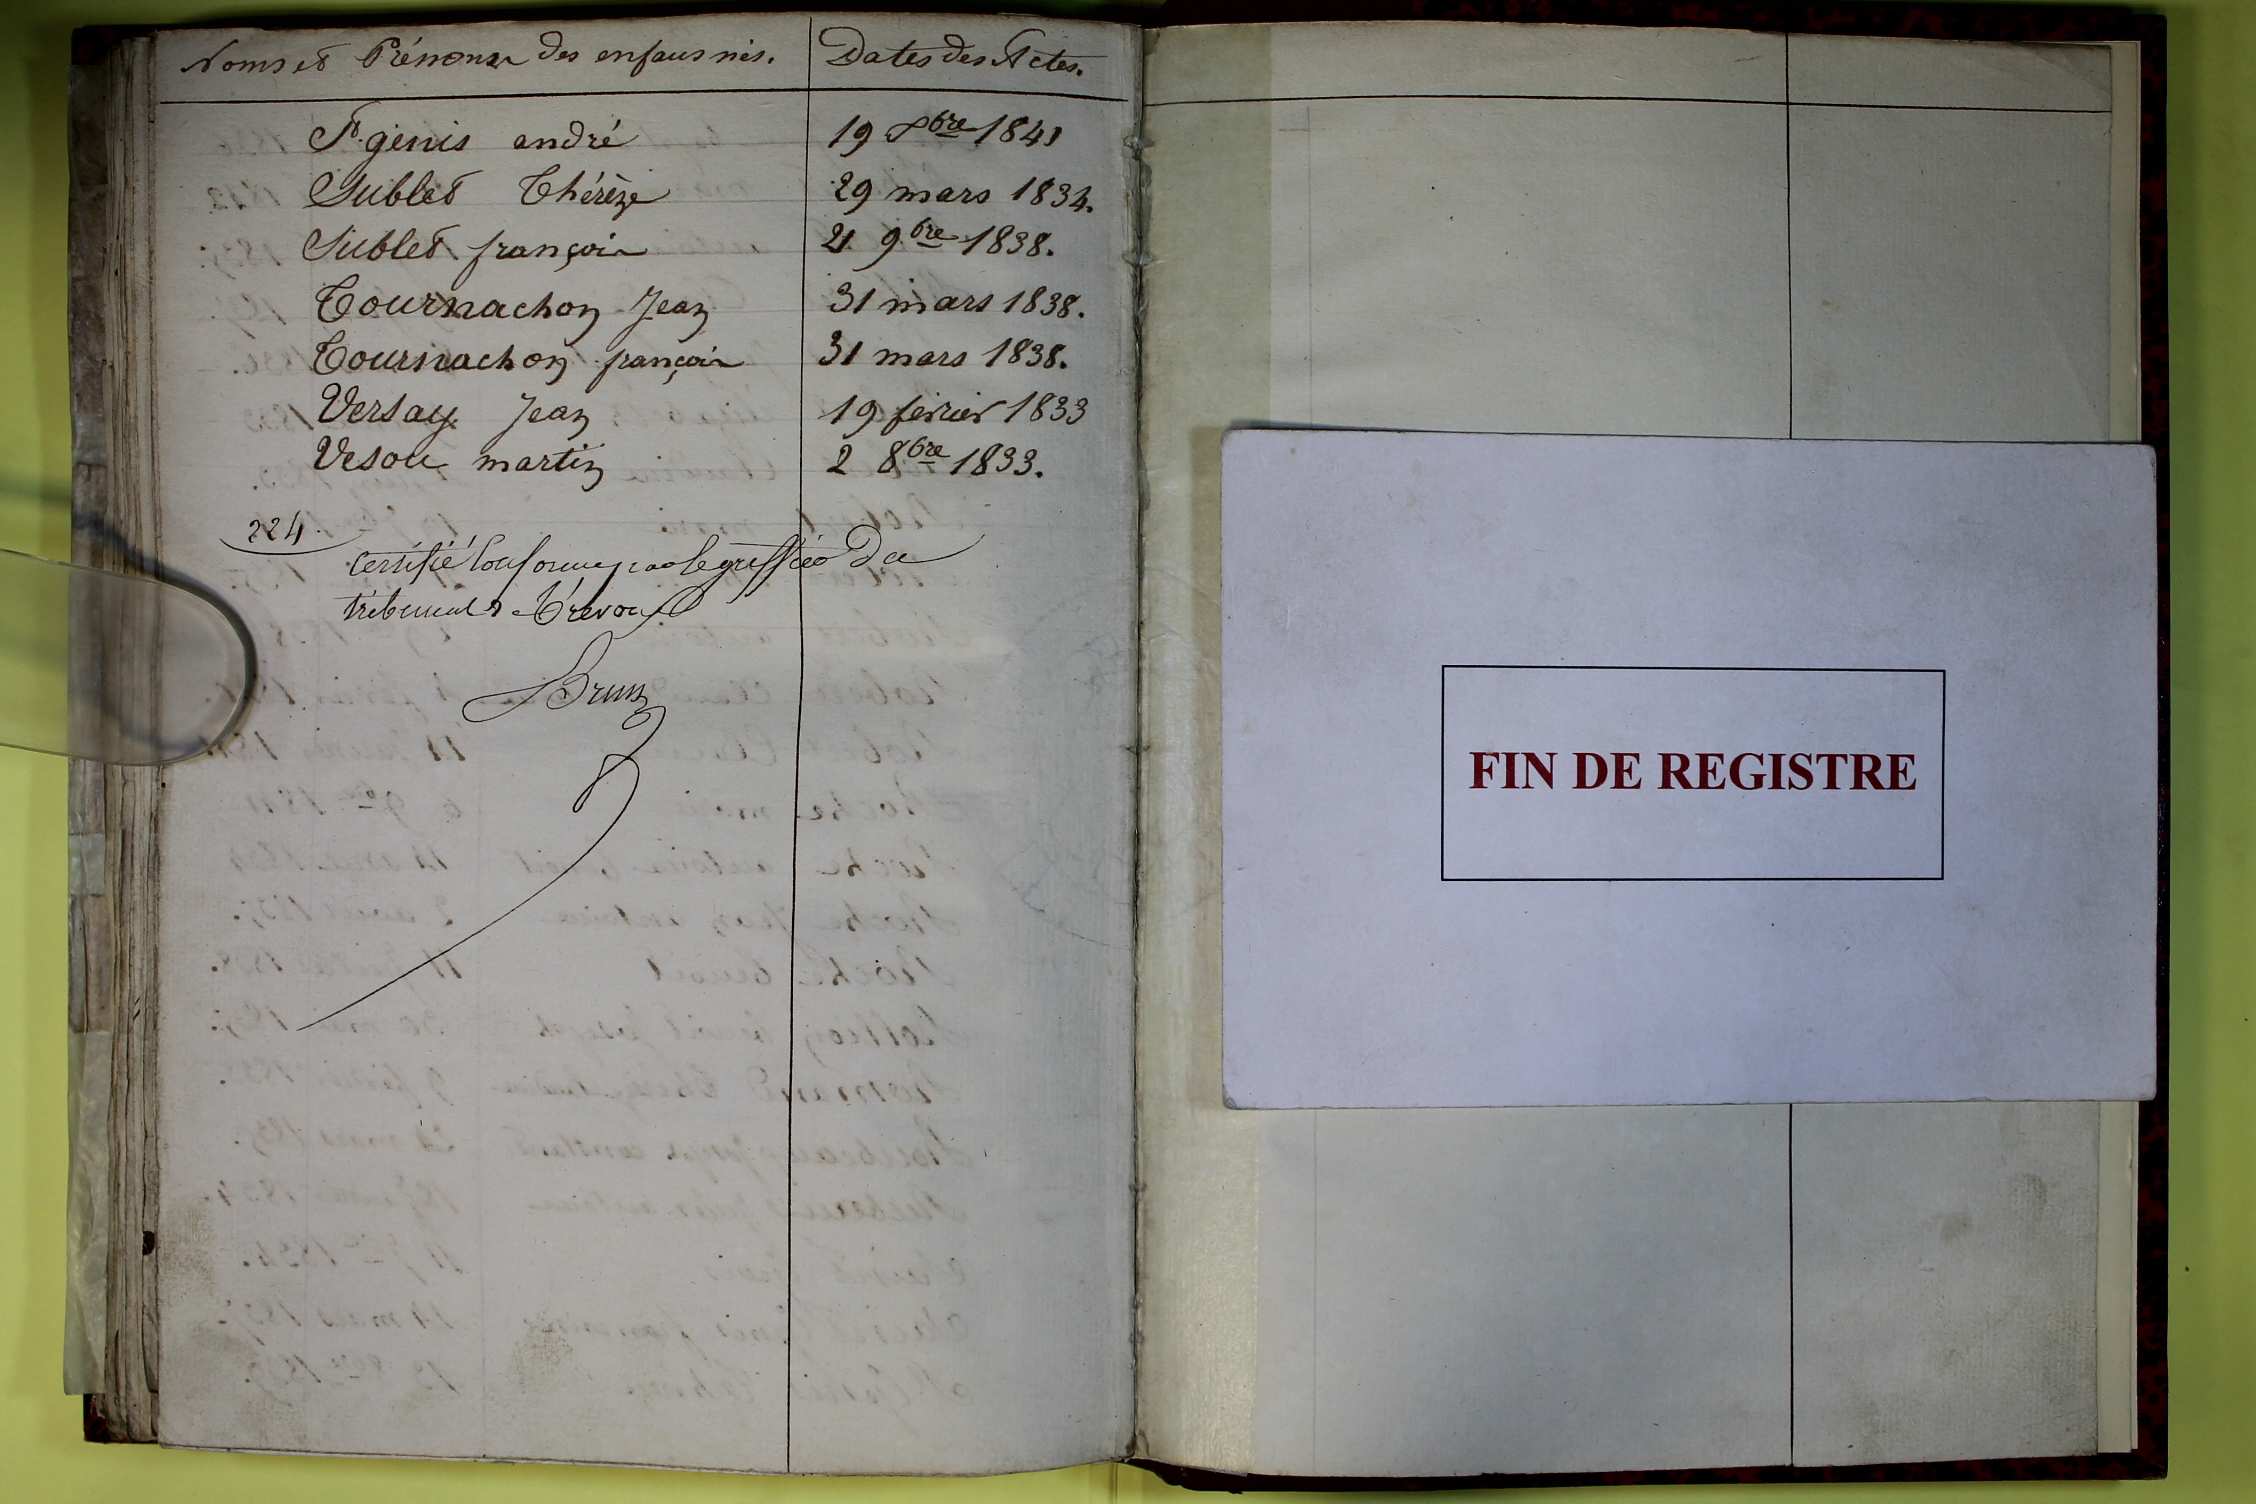 Noms et Prénoms des enfans nés. Dates des Actes.
St genis andré 19 8bre 1841
Sublet Thérèze 29 mars 1834.
Sublet françois 21 9bre 1838.
Tournachon Jean 31 mars 1838.
Tournachon françois 31 mars 1838.
Versay Jean 19 février 1833
Vesou martin 2 8bre 1833.
224.
Certifié Conforme par le greffier du
tribunal de Trévoux
Brun
FIN DE REGISTRE